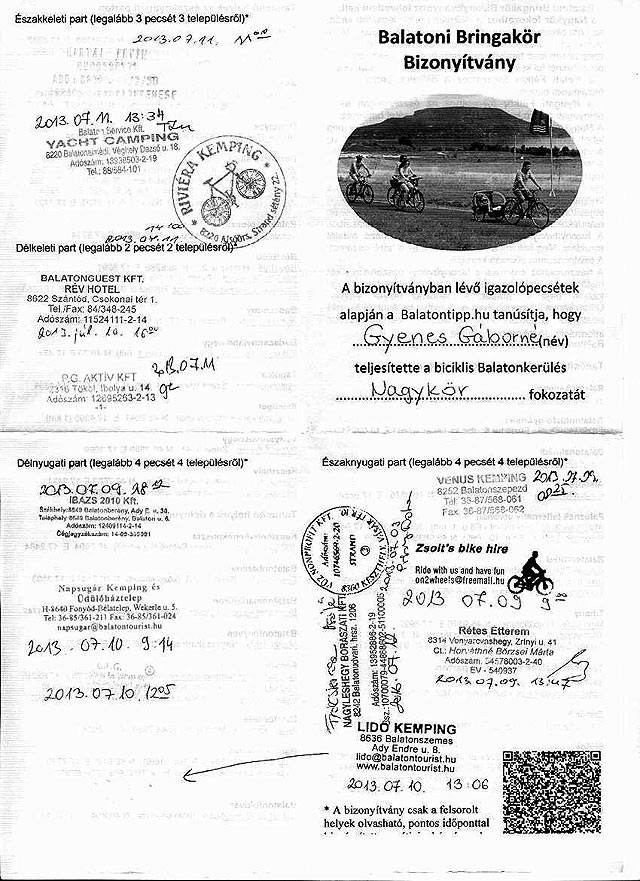 Északkeleti part (legalább 3 pecsét 3 településről)*
2013.07.11.
2013.07.11. 13:34
Balaton Service Kft.
YACHT CAMPING
8220 Balatonalmádi, Véghely Dezső u. 18.
Adószám: 13938503-2-19
Tel.: 88/584-101
RIVIÉRA KEMPING
8226 Alsóörs, Strand sétány 22.
2013.07.11
Délkeleti part (legalább 2 pecsét 2 településről)*
BALATONGUEST KFT.
RÉV HOTEL
8622 Szántód, Csokonai tér 1.
Tel./Fax: 84/348-245
Adószám: 11524111-2-14
2013. júl. 10. 16 00
2013.07.11
P.G. AKTÍV KFT
2316 Tököl, Ibolya u. 14.
Adószám: 12695263-2-13
-1-
Balatoni Bringakör
Bizonyítvány
A bizonyítványban lévő igazolópecsétek
alapján a Balatontipp.hu tanúsítja, hogy
Gyenes Gáborné (név)
teljesítette a biciklis Balatonkerülés
Nagykör fokozatát
Délnyugati part (legalább 4 pecsét 4 településről)*
2013.07.09. 18
IBAZS 2010 Kft.
Székhely: 8649 Balatonberény, Ady E. u. 30.
Telephely: 8649 Balatonberény, Balaton u. 6.
Adószám: 12409114-2-14
Cégjegyzékszám: 14-09-302301
Napsugár Kemping és
Üdülőháztelep
H-8640 Fonyód-Bélatelep, Wekerle u. 5.
Tel: 36-85/361-211 Fax: 36-85/361-024
napsugar@balatontourist.hu
2013.07.10. 9:14
2013.07.10. 12 05
Északnyugati part (legalább 4 pecsét 4 településről)*
VÉNUS KEMPING
8252 Balatonszepezd
Tel: 36-87/568-061
Fax: 36-87/568-062
2013.07.09.
VOZ NONPROFIT KFT.
10746609-2-20
STRAND
8360 KESZTHELY
Zsolt's bike hire
Ride with us and have fun
on2wheels@freemail.hu
2013 07.09 9
NAGYLESHEGY BORÁSZATI KFT.
8242 Balatonudvari, hrsz. 1206
Adószám: 13952886-2-19
Rétes Étterem
8314 Vonyarcvashegy, Zrínyi u. 41
CL: Horváthné Börzsei Márta
Adószám: 54578003-2-40
EV - 540937
2013.07.09. 13:47
LIDÓ KEMPING
8636 Balatonszemes
Ady Endre u. 8.
lido@balatontourist.hu
www.balatontourist.hu
2013.07.10. 13:06
* A bizonyítvány csak a felsorolt
helyek olvasható, pontos időponttal